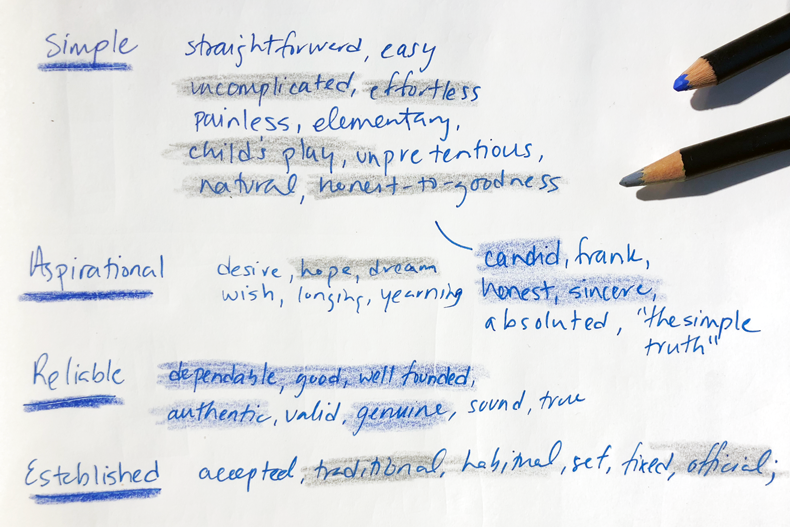 Simple straightforward, easy
uncomplicated, effortless
painless, elementary,
child's play, unpretentious,
natural, honest-to-goodness
candid, frank,
honest, sincere,
absoluted, "the simple
truth"
Aspirational desire, hope, dream
wish, longing, yearning
Reliable dependable, good, well founded,
authentic, valid, genuine, sound, true
Established accepted, traditional, habitual, set, fixed, official;